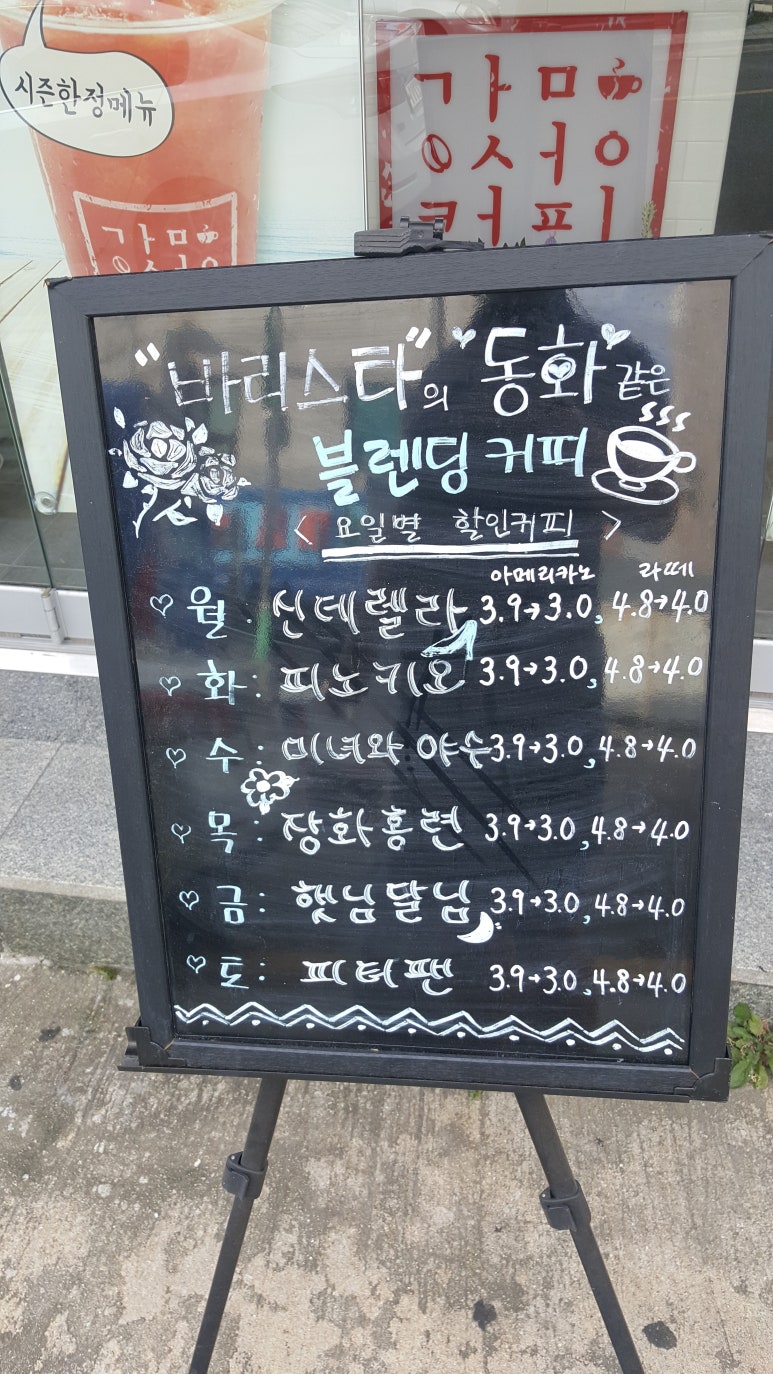 시즌한정메뉴
가무
ㅇ서이
커피
가무
ㅇ서이
"바리스타"의 동화 같은
블렌딩 커피
< 요일별 할인커피 >
아메리카노 라떼
월. 신데렐라 3.9→3.0, 4.8→4.0
화: 피노키오 3.9→3.0, 4.8→4.0
수: 미녀와 야수 3.9→3.0, 4.8→4.0
목: 장화홍련 3.9→3.0, 4.8→4.0
금: 햇님달님 3.9→3.0, 4.8→4.0
토: 피터팬 3.9→3.0, 4.8→4.0